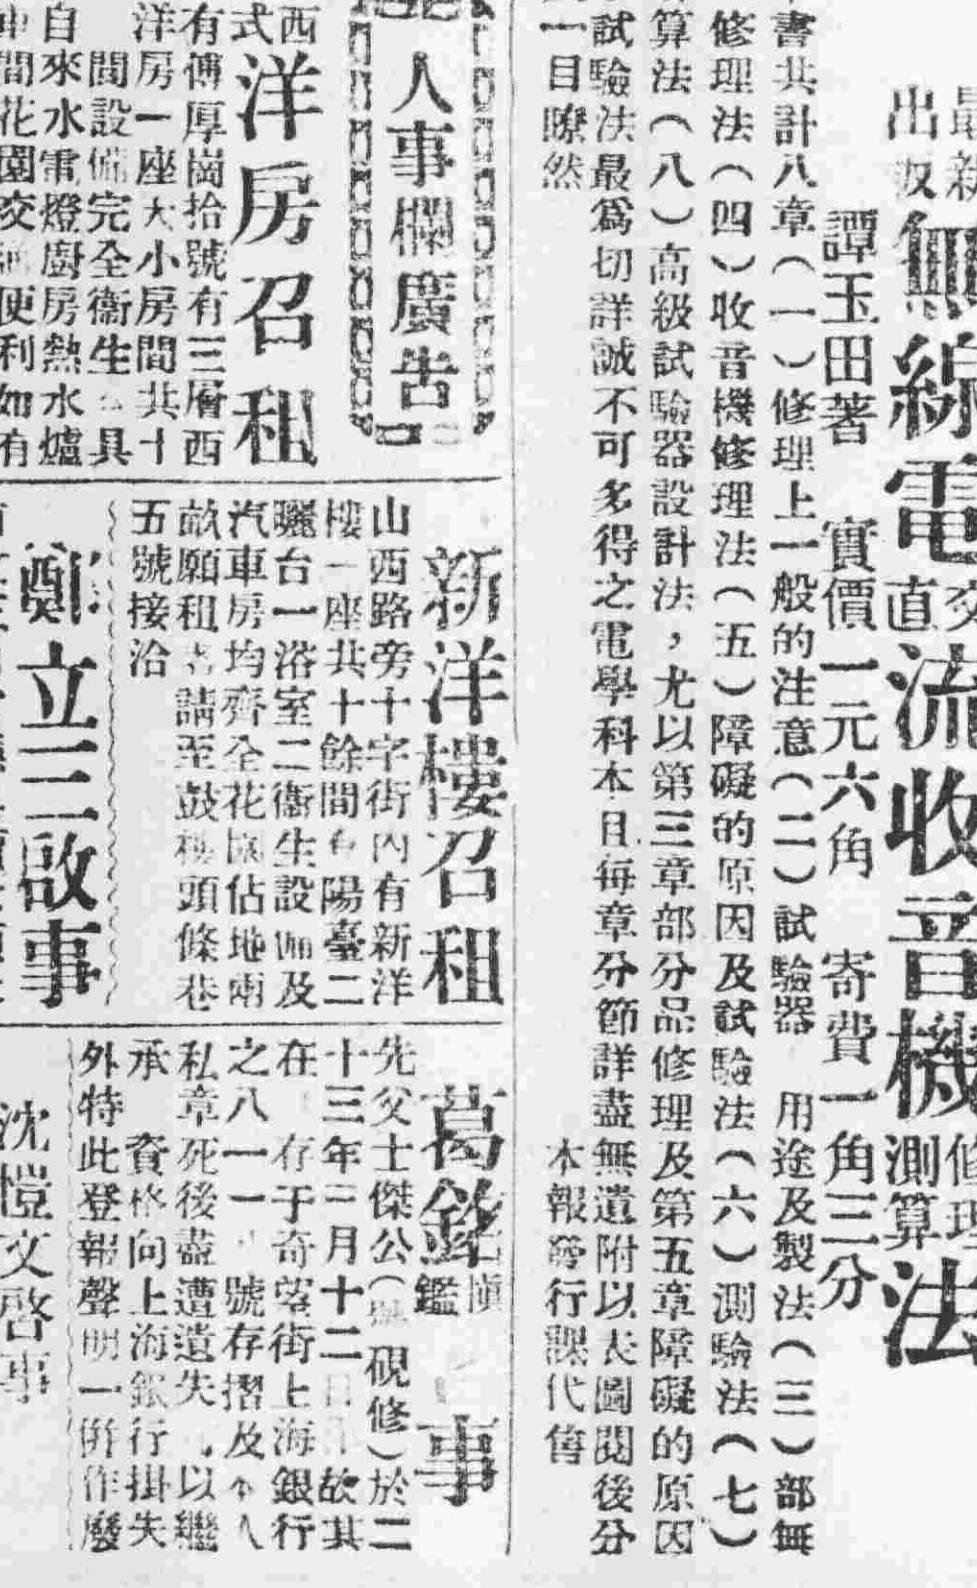 最新出版
無線電
交直
流收音機
修理測算
法
譚玉田著 實價一元六角 寄費一角三分
書共計八章(一)修理上一般的注意(二)試驗器 用途及製法(三)部無
修理法(四)收音機修理法(五)障礙的原因及試驗法(六)測驗法(七)
算法(八)高級試驗器設計法，尤以第三章部分品修理及第五章障礙的原因
試驗法最爲切詳誠不可多得之電學科本且每章分節詳盡無遺附以表圖閱後分
一目瞭然 本報發行課代售
人事欄廣告
西式
洋房召租
有傅厚崗拾號有三層西
洋房一座大小房間共十
間設備完全衞生 具
自來水電燈廚房熱水爐
間花園交通便利如有
新洋樓召租
山西路旁十字街內有新洋
樓一座共十餘間 陽臺二
曬台一浴室二衞生設備及
汽車房均齊全花園佔地兩
畝願租者請至鼓樓頭條巷
五號接洽
鄭立三啟事
葛銘
鑑
慎
事
先父士傑公( 硯修)於二
十三年二月十二日 故其
在 存于奇望街上海銀行
之八一一 號存摺及本人
私章死後盡遭遺失 以繼
承 資格向上海銀行掛失
外特此登報聲明一併作廢
沈愷文啓事